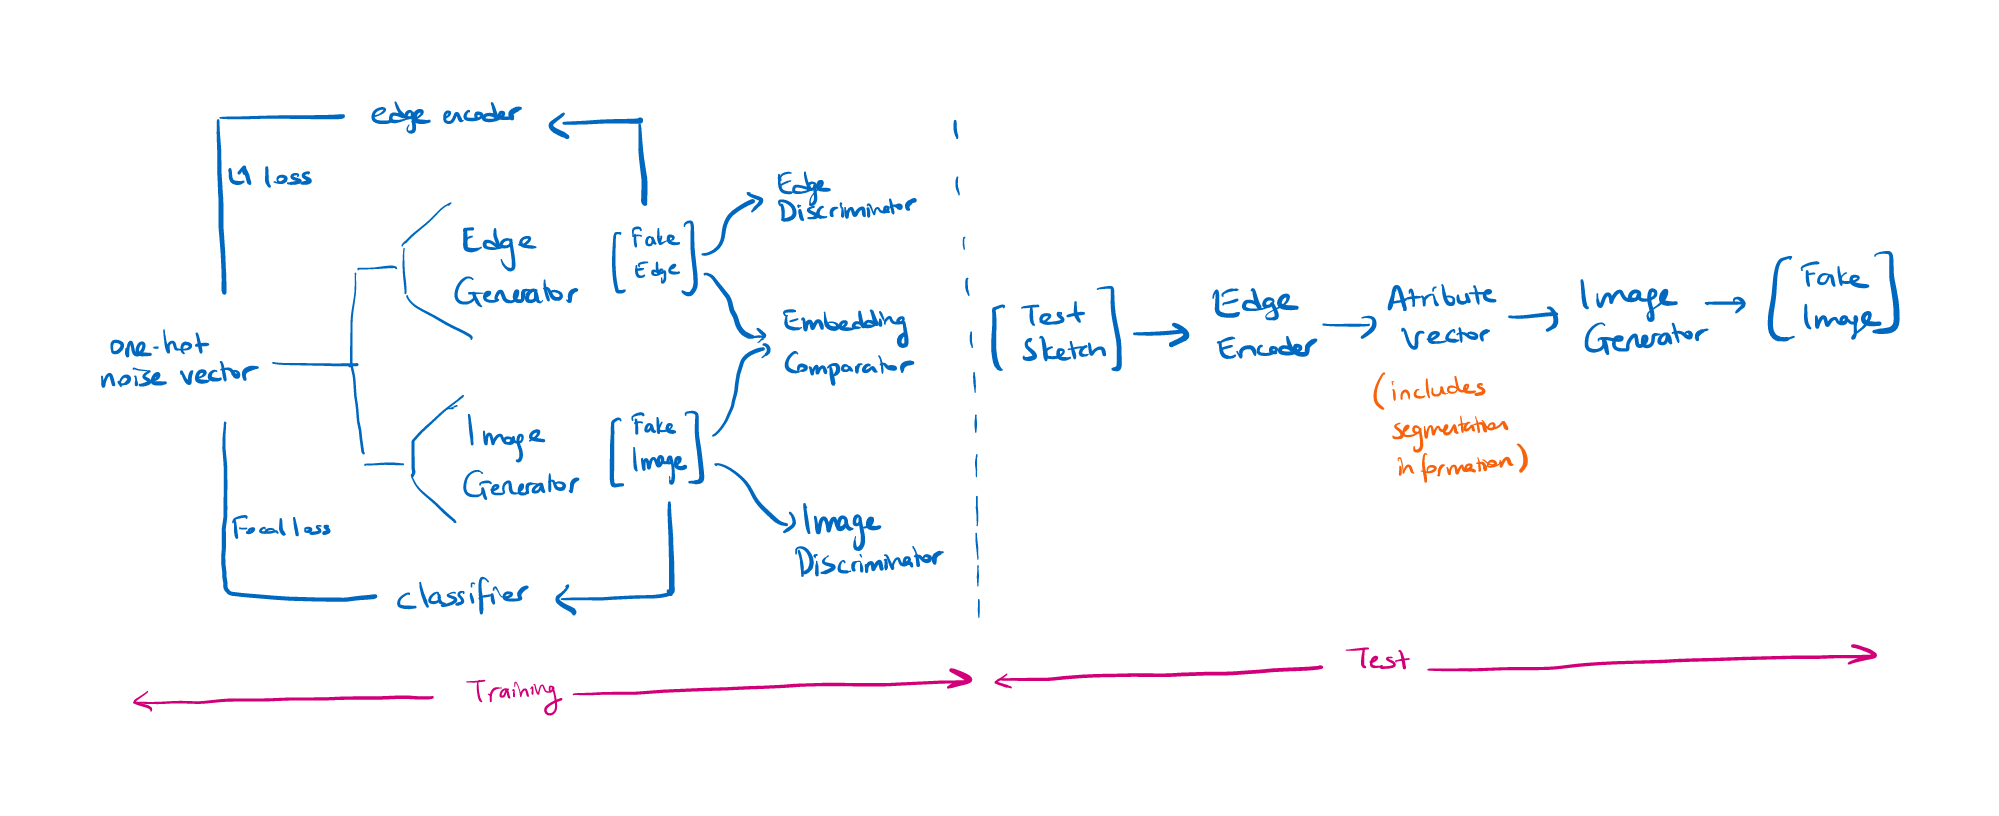 edge encoder
L1 loss
Edge
Generator
Fake
Edge
Edge
Discriminator
Embedding
Comparator
one-hot
noise vector
Image
Generator
Fake
Image
Image
Discriminator
Focal loss
classifier
Training
Test
Sketch
Edge
Encoder
Atribute
vector
(includes
segmentation
information)
Image
Generator
Fake
Image
Test